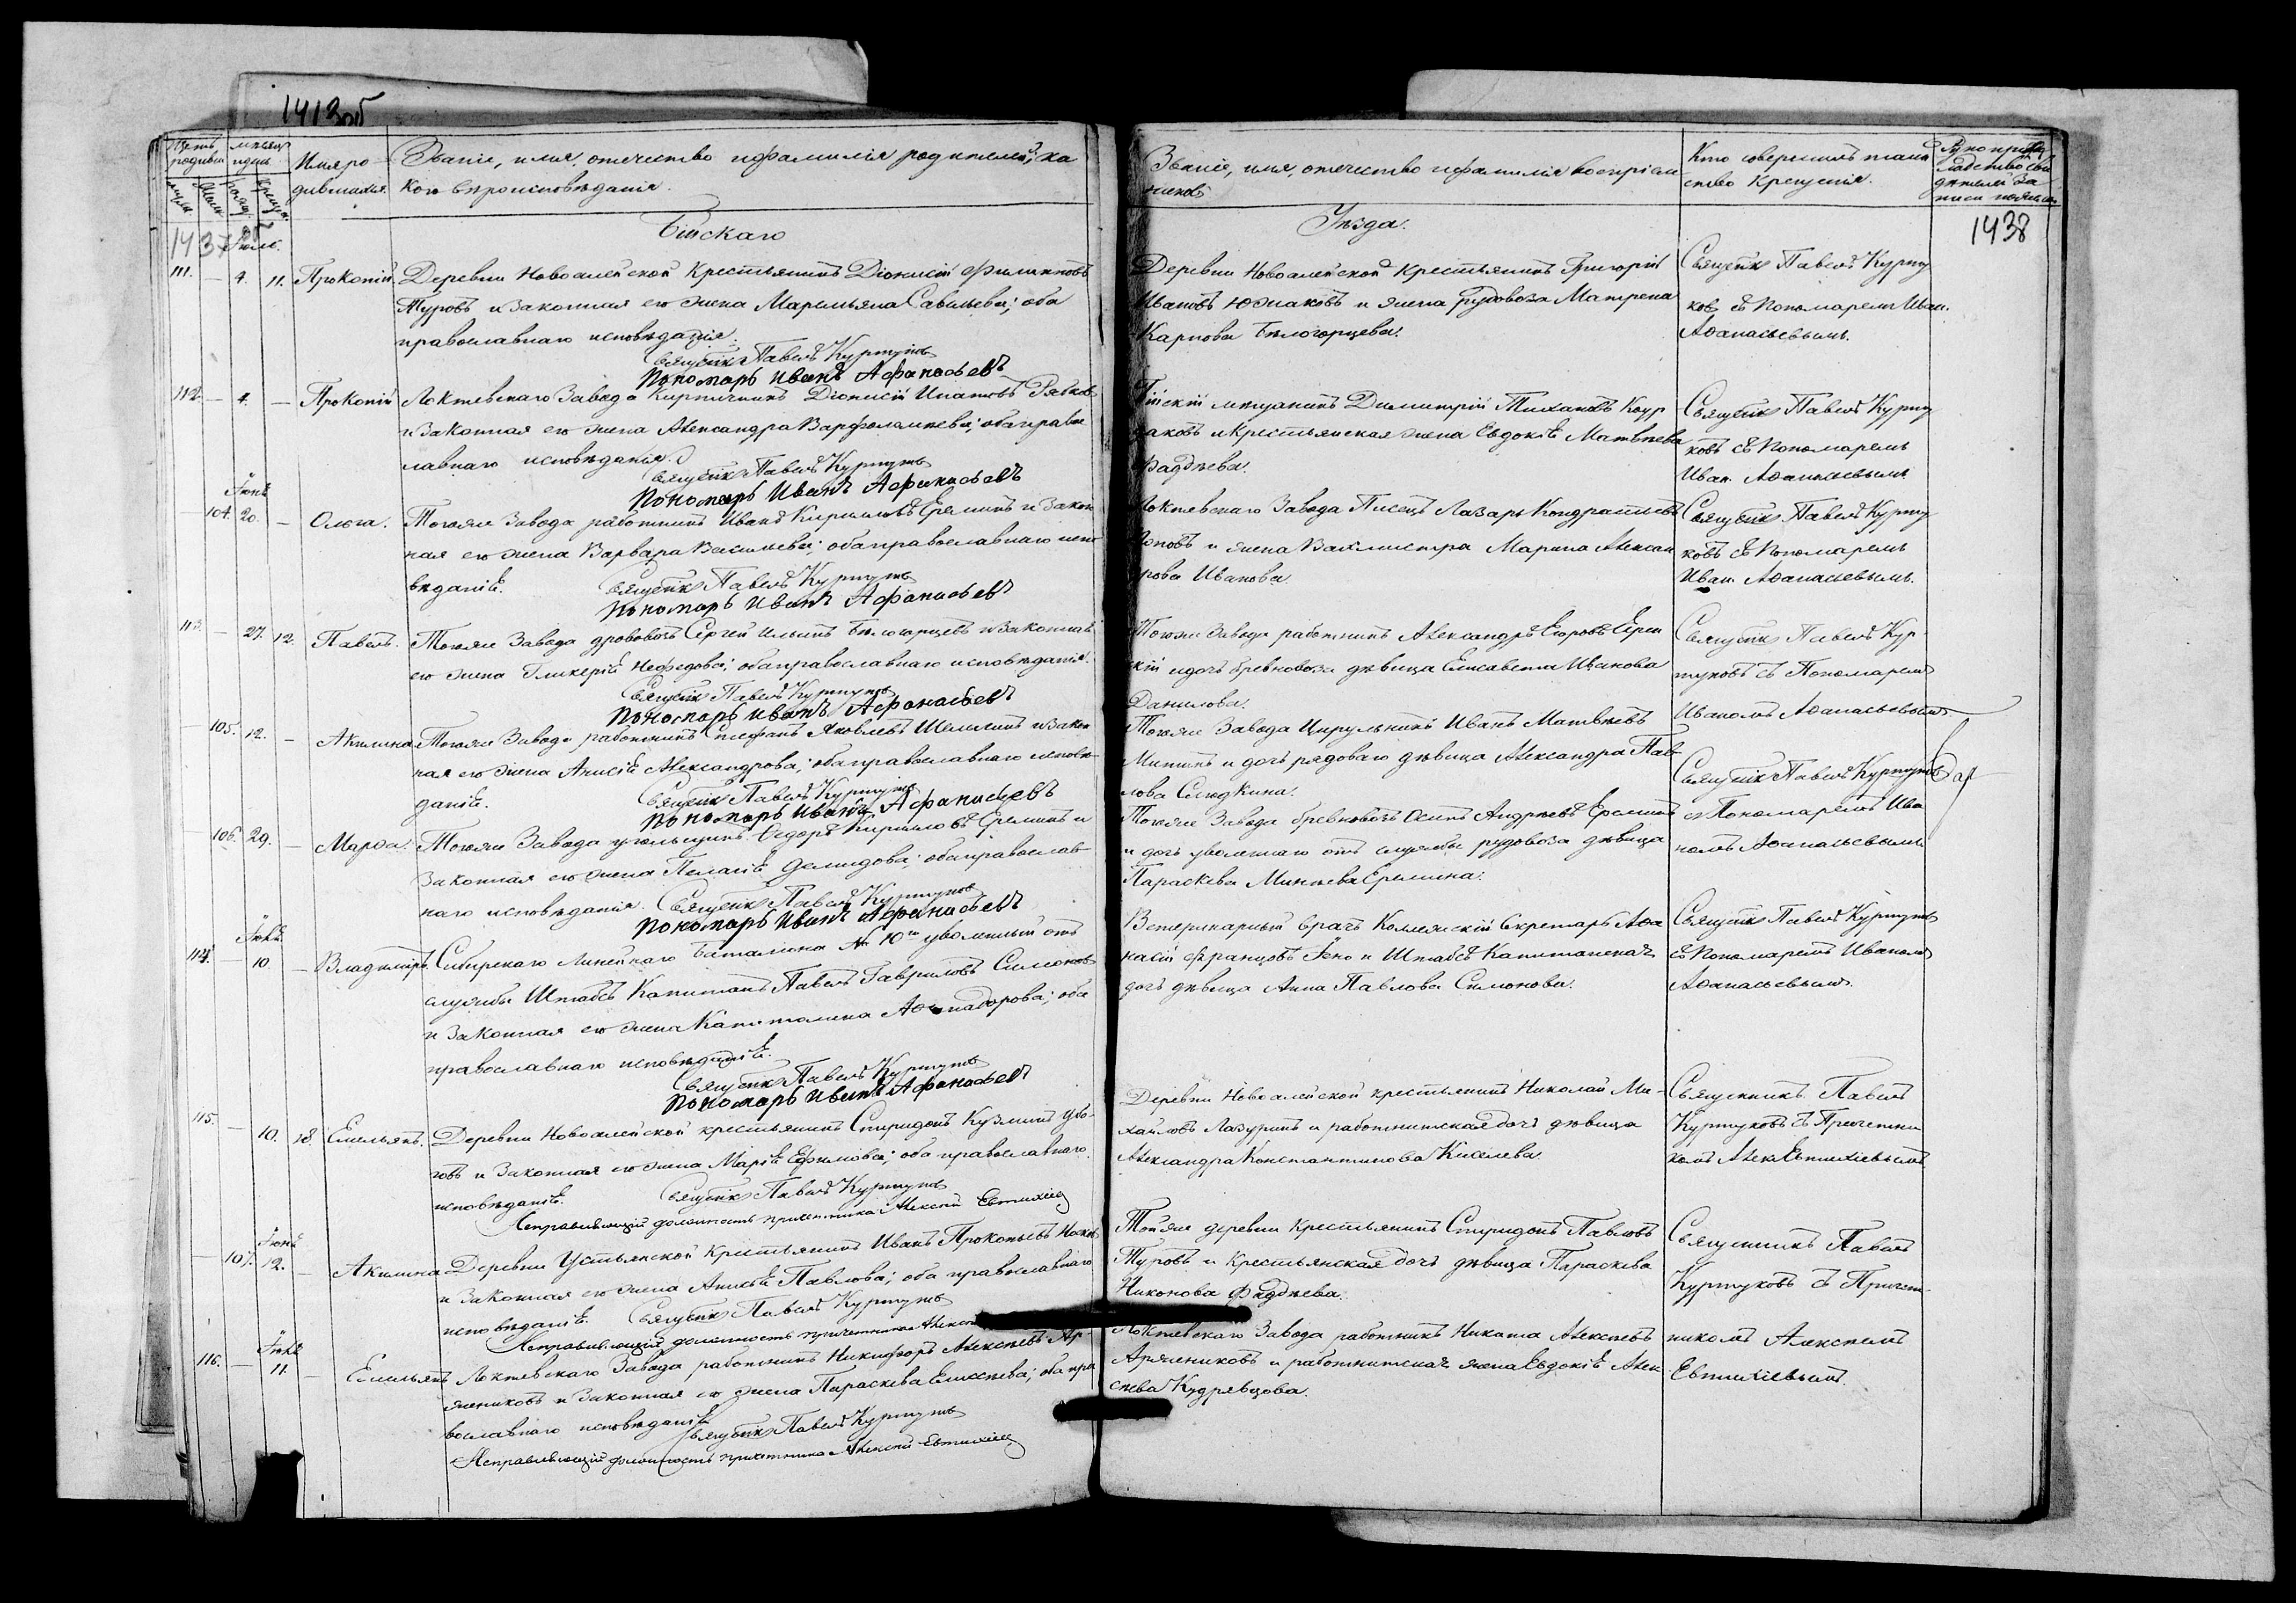 1413об
Счетъ родивш.
мѣсяцъ и день
Имя ро-
дившихся.
Званіе, имя, отечество и фамилія родителей, ка
кого вѣроисповѣданія.
Званіе, имя, отечество и фамилія воспріем
никовъ
Кто совершилъ таин
ство крещенія.
1437об
Бійскаго
Уѣзда.
1438
Іюль.
111. — 4. 11. Прокопій
Деревни Новоалейской крестьянинъ Діонисій Филиповъ
Туровъ и законная его жена Маремьяна Савельева; оба
православнаго исповѣданія.
Священикъ Павелъ Куртуковъ
Пономарь Иванъ Афанасьевъ
Деревни Новоалейской крестьянинъ Григорій
Ивановъ Южаковъ и жена рудовоза Матрена
Карпова Бѣлогорцева.
Священикъ Павелъ Курту
ковъ съ Пономарем Иван.
Аѳанасьевымъ.
112. — 4. — Прокопій
Локтевскаго Завода Кирпичникъ Діонисій Ипатовъ
и законная его жена Александра Варфоломеева; оба право
славнаго исповѣданія.
Священикъ Павелъ Куртуковъ
Пономарь Иванъ Афанасьевъ
Бійскій мещанинъ Димитрій Тихановъ
и крестьянская жена Евдокія Матвѣева
Фадѣева.
Священикъ Павелъ Курту
ковъ съ Пономаремъ
Иван. Аѳанасьевымъ
Іюнь
— 104. 20. — Ольга.
Тогоже Завода работникъ Иванъ Кириловъ Ереминъ и закон
ная его жена Варвара Васильева; оба православнаго испо
вѣданія.
Священикъ Павелъ Куртуковъ
Пономарь Иванъ Афанасьевъ
Локтевскаго Завода Писецъ Лазарь Кондратьевъ
Поповъ и жена Вахмистра Марина Алексан
дрова Иванова.
Священикъ Павелъ Курту
ковъ съ Пономаремъ
Иван. Аѳанасьевымъ.
113. — 27. 12. Павелъ.
Тогоже Завода дрововозъ Сергѣй Ильинъ Бѣлогорцевъ и законная
его жена Гликерія Нефедова; оба православнаго исповѣданія.
Священикъ Павелъ Куртуковъ
Пономарь Иванъ Афанасьевъ
Тогоже Завода работникъ Александръ Егоровъ
и дочь бревновоза дѣвица Елисавета Иванова
Данилова.
Священикъ Павелъ Кур-
туковъ съ Пономаремъ
Иваномъ Аѳанасьевымъ.
105. 12. — Акилина
Тогоже Завода работникъ Стефанъ Яковлевъ и закон
ная его жена Анисія Александрова; оба православнаго исповѣ-
данія.
Священикъ Павелъ Куртуковъ
Пономарь Иванъ Афанасьевъ
Тогоже Завода Цирульникъ Иванъ Матвѣевъ
Митинъ и дочь рядоваго дѣвица Александра Пав-
лова Слюдкина.
Священикъ Павелъ Куртуковъ
106. 29. — Марѳа.
Тогоже Завода угольщикъ Ѳедоръ Кириловъ Ереминъ и
законная его жена Пелагія Демидова; оба православ-
наго исповѣданія.
Священикъ Павелъ Куртуковъ
Пономарь Иванъ Афанасьевъ
Тогоже Завода бревновозъ Осипъ Андреевъ Ереминъ
и дочь уволеннаго отъ службы рудовоза дѣвица
Параскева Минѣева Еремина.
съ Пономаремъ Ива
номъ Аѳанасьевымъ
Іюль.
114. — 10 — Владиміръ.
Сибирскаго Линейнаго баталіона № 10го уволенный отъ
службы Штабсъ Капитанъ Павелъ Гавриловъ Симоновъ
и законная его жена Капитолина; оба
православнаго исповѣданія.
Священикъ Павелъ Куртуковъ
Пономарь Иванъ Афанасьевъ
Ветеринарный врачъ Коллежскій Секретарь Аѳа
насій Францовъ и Штабсъ Капитанская
дочь дѣвица Анна Павлова Симонова.
Священикъ Павелъ Куртуковъ
съ Пономаремъ Иваномъ
Аѳанасьевымъ.
115. — 10. 18. Емельянъ.
Деревни Новоалейской крестьянинъ Спиридонъ Кузминъ Убо-
говъ и законная его жена Марія Ефимова; оба православнаго
исповѣданія.
Священикъ Павелъ Куртуковъ
Исправляющій должность причетника Алексѣй Евтихіевъ
Деревни Новоалейской крестьянинъ Николай Ми-
хайловъ Лазуринъ и работническая дочь дѣвица
Александра Константинова Киселева.
Священникъ Павелъ
Куртуковъ съ Причетни
комъ Алек. Евтихіевымъ
Іюнь
— 107. 12. — Акилина
Деревни Устьянской крестьянинъ Иванъ Прокопьевъ
и законная его жена Анисья Павлова; оба православнаго
исповѣданія.
Священикъ Павелъ Куртуковъ
Исправляющій должность причетника
Той же деревни крестьянинъ Спиридонъ Павловъ
Туровъ и крестьянская дочь дѣвица Параскева
Никонова Фадѣева.
Священникъ Павелъ
Куртуковъ съ Причет-
никомъ Алексѣемъ
Евтихіевымъ.
Іюль
116. — 11. — Емельянъ
Локтевскаго Завода работникъ Никифоръ Алексѣевъ Ар-
жениковъ и законная его жена Параскева Елисѣева; оба пра
вославнаго исповѣданія
Священикъ Павелъ Куртуковъ
Исправляющій должность причетника Алексѣй Евтихіевъ
Локтевскаго Завода работникъ Никита Алексѣевъ
Аржениковъ и работническая жена Евдокія Алек
сѣева Кудрявцова.